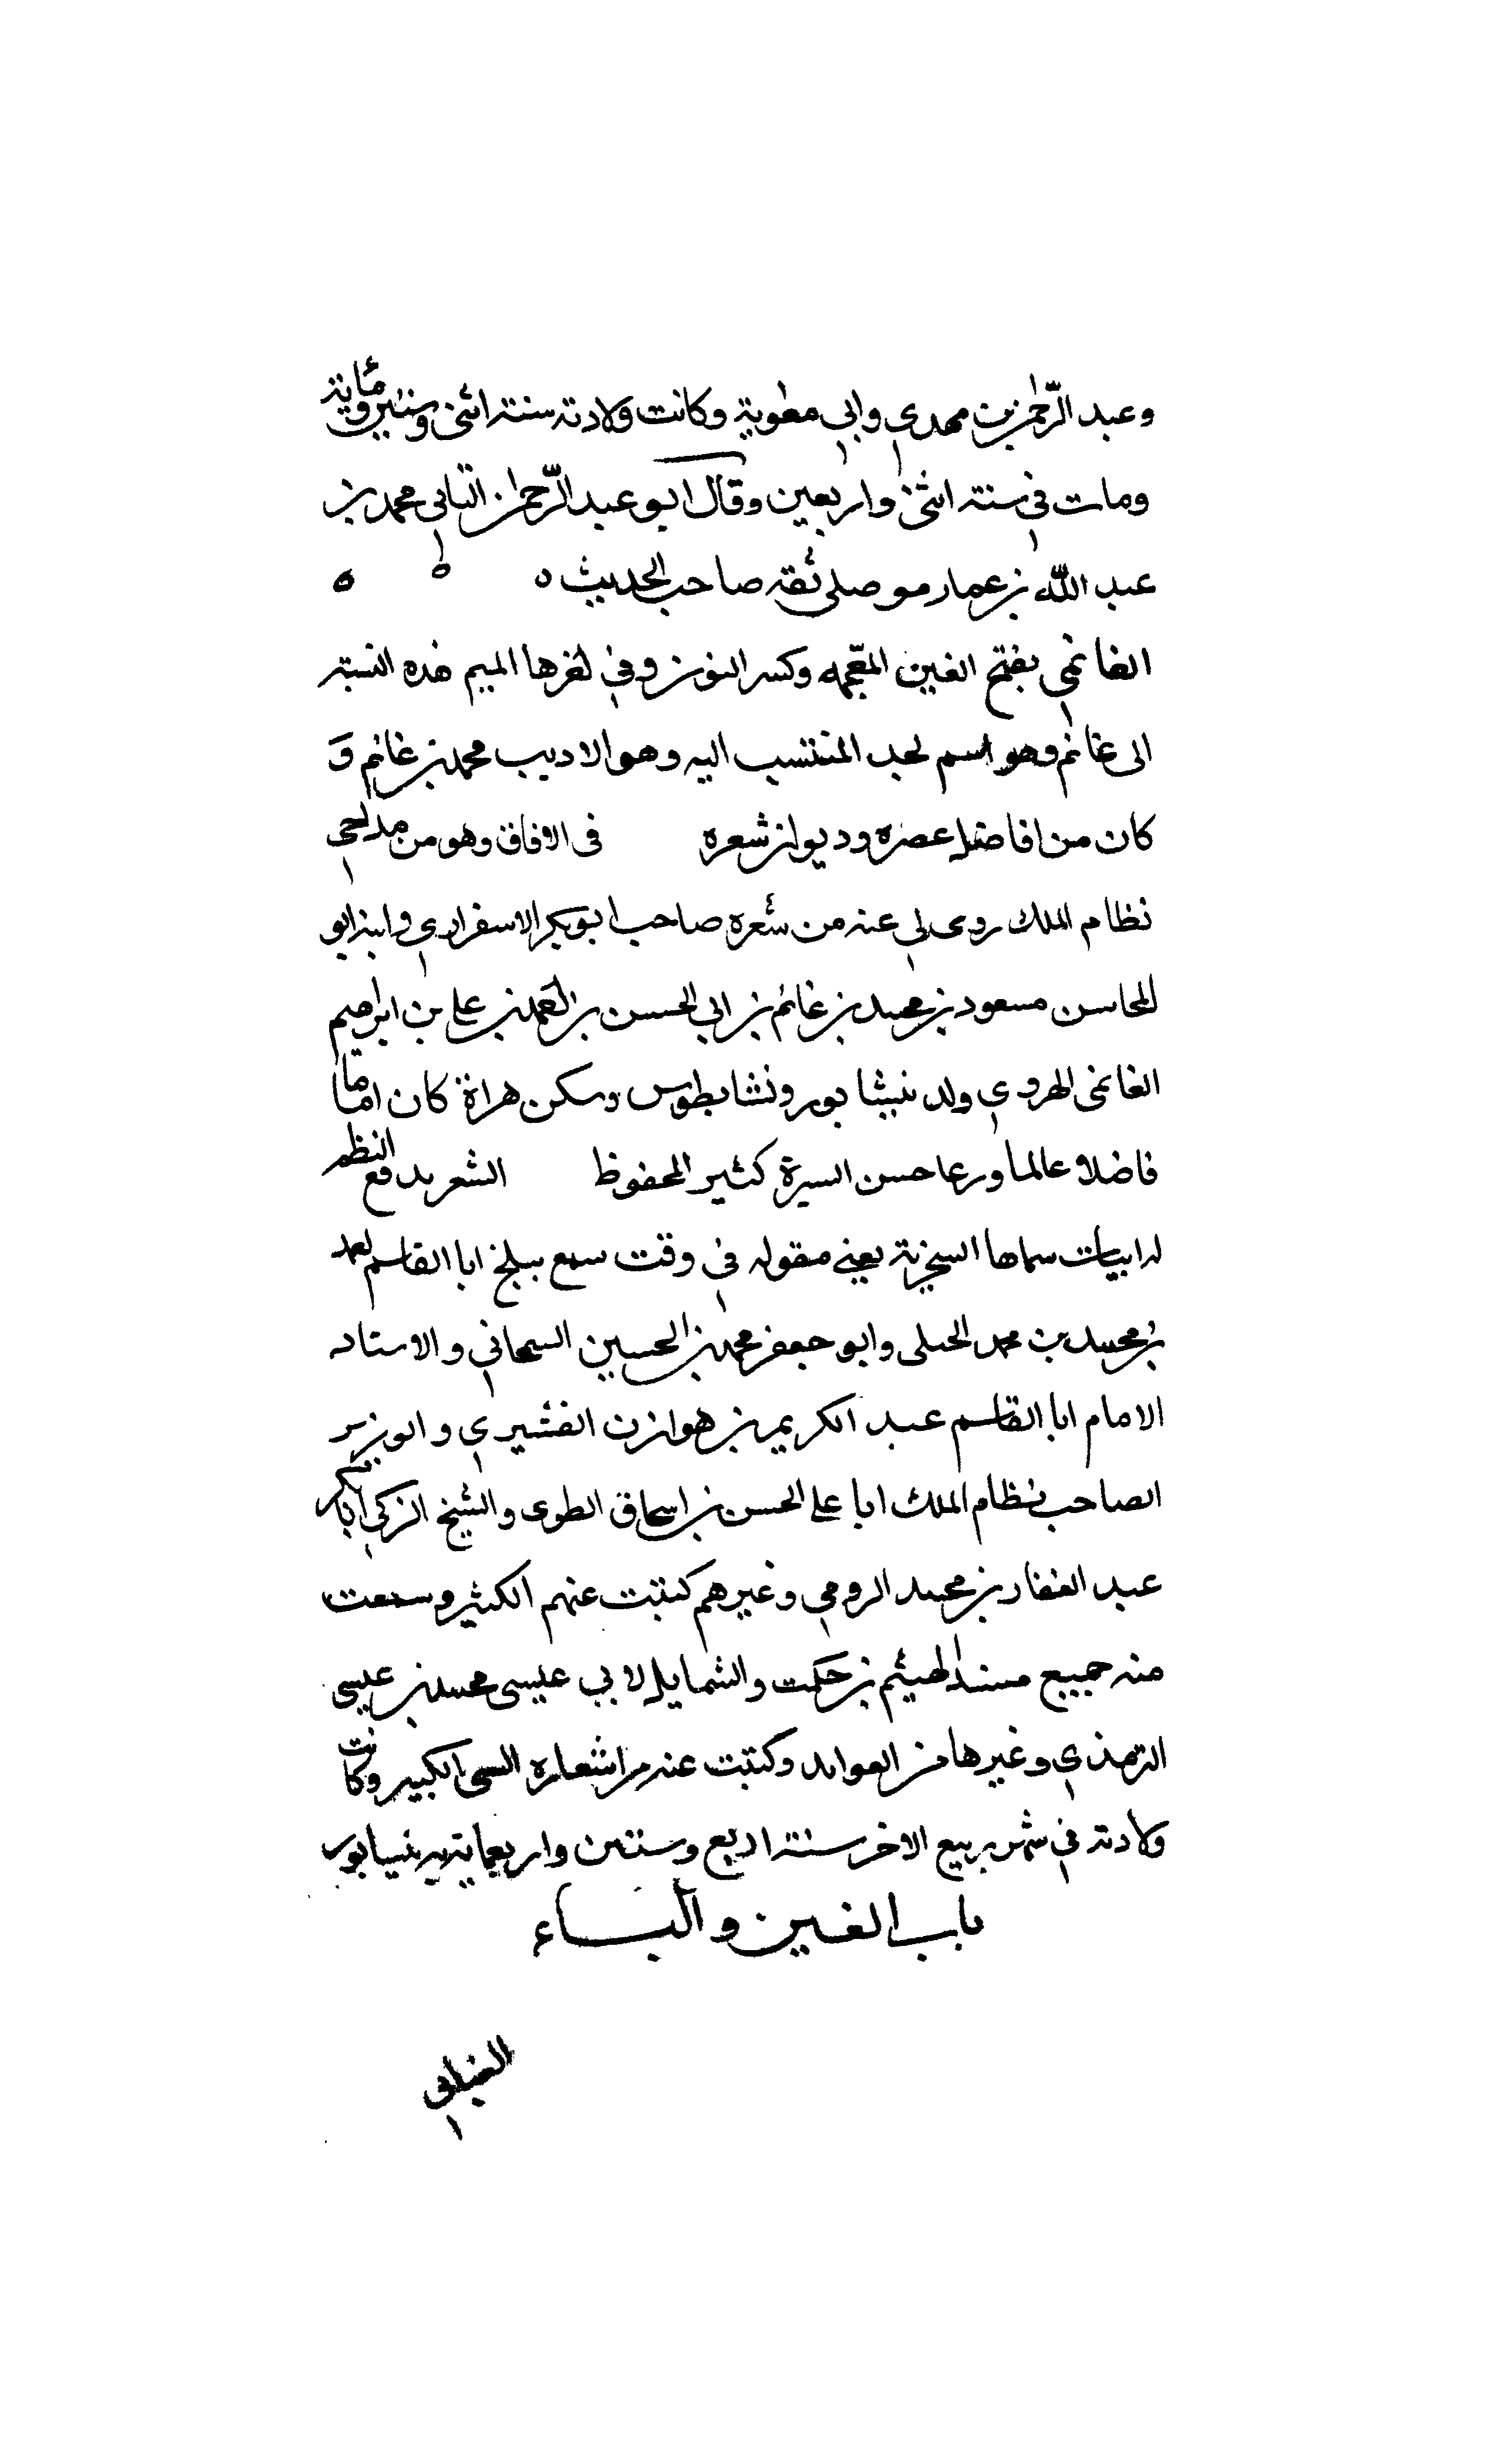 وعبد الرّحمن بن مهدي وابي معوية وكانت ولادته سنة اثنى وستين ومايه
ومات في سنة اثنى واربعين وقال ابو عبد الرّحمن النسائى محمد بن
عبد اللّه بن عمار موصلى ثقه صاحب الحديث ه ه ه
الغانمى بفتح الغين المعجمه وكسر النون وفي اخرها الميم هذه النسبة
الى غانم وهو اسم لجد المنتسب اليه وهو الاديب محمد بن غانم و
كان من افاضل عصره وديوان شعره فى الافاق وهو من مداحى
نظام الملك روى لي عنه من شعره صاحب ابو بكر الاسفزاري وابنه ابو
المحاسن مسعود بن محمد بن غانم بن ابي الحسن بن احمد بن على بن ابراهيم
الغانمى الهروي ولد بنيشابور ونشا بطوس وسكن هراة كان اماما
فاضلا عالما ورعا حسن السيرة كثير المحفوظ الشعر النظم
له ابيات سماها السنجرية يعني مقوله في وقت سمع ببلخ ابا القاسم احمد
بن محمد بن محمد الخليلى وابو جعفر محمد بن الحسين السمعاني والاستاد
الامام ابا القاسم عبد الكريم بن هوازن القشيري والوزير
الصاحب نظام الملك ابا على الحسن بن اسحاق الطوسى والشيخ الزكى ابا بكر
عبد الغفار بن محمد الرومي وغيرهم كتبت عنهم الكثير وسمعت
منه جميع مسند الهيثم بن والشمايل لابي عيسى محمد بن عيسى
الترمذي وغيرها من الفوايد وكتبت عنه من اشعاره الكبير وكانت
ولادته في شهر ربيع الاخر سنة اربع وستين واربعماية بنيسابور
باب الغين والباء